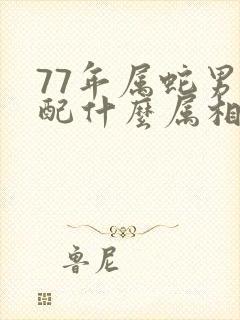 77年属蛇男
配什麽属相
鲁尼